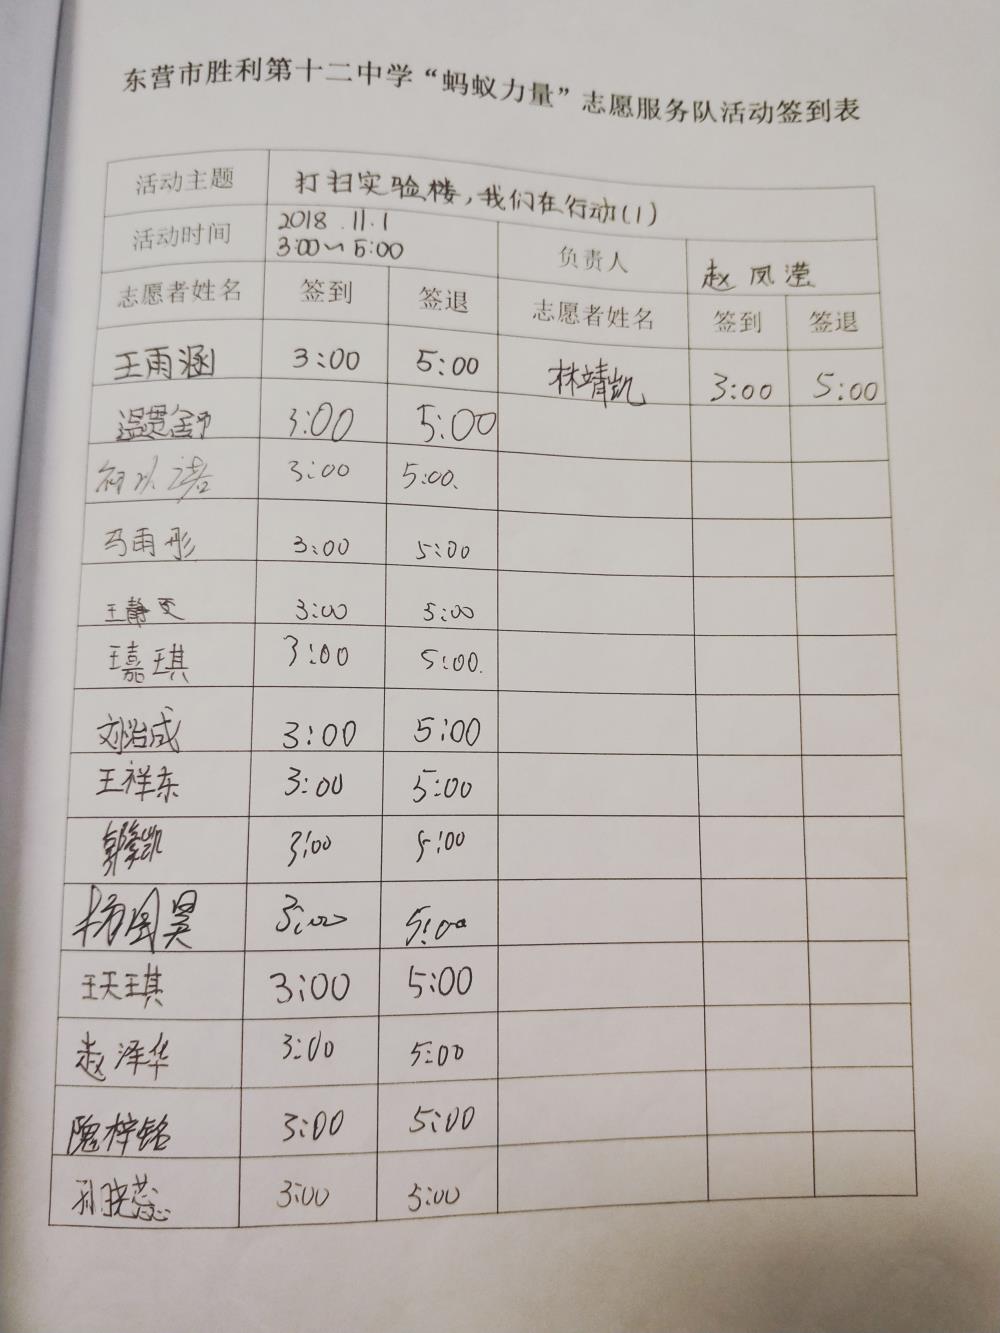 东营市胜利第十二中学“蚂蚁力量”志愿服务队活动签到表
活动主题 打扫实验楼,我们在行动(1)
活动时间 2018.11.1 3:00～5:00 负责人 赵凤滢
志愿者姓名 签到 签退 志愿者姓名 签到 签退
王雨涵 3:00 5:00 林靖凯 3:00 5:00
温贯 3:00 5:00
何以诺 3:00 5:00.
马雨彤 3:00 5:00
王静雯 3:00 5:00
王嘉琪 3:00 5:00.
刘治成 3:00 5:00
王祥东 3:00 5:00
郭凯 3:00 5:00
杨国昊 3:00 5:00
王天琪 3:00 5:00
赵泽华 3:00 5:00
隗梓铭 3:00 5:00
孙晓蕊 3:00 5:00